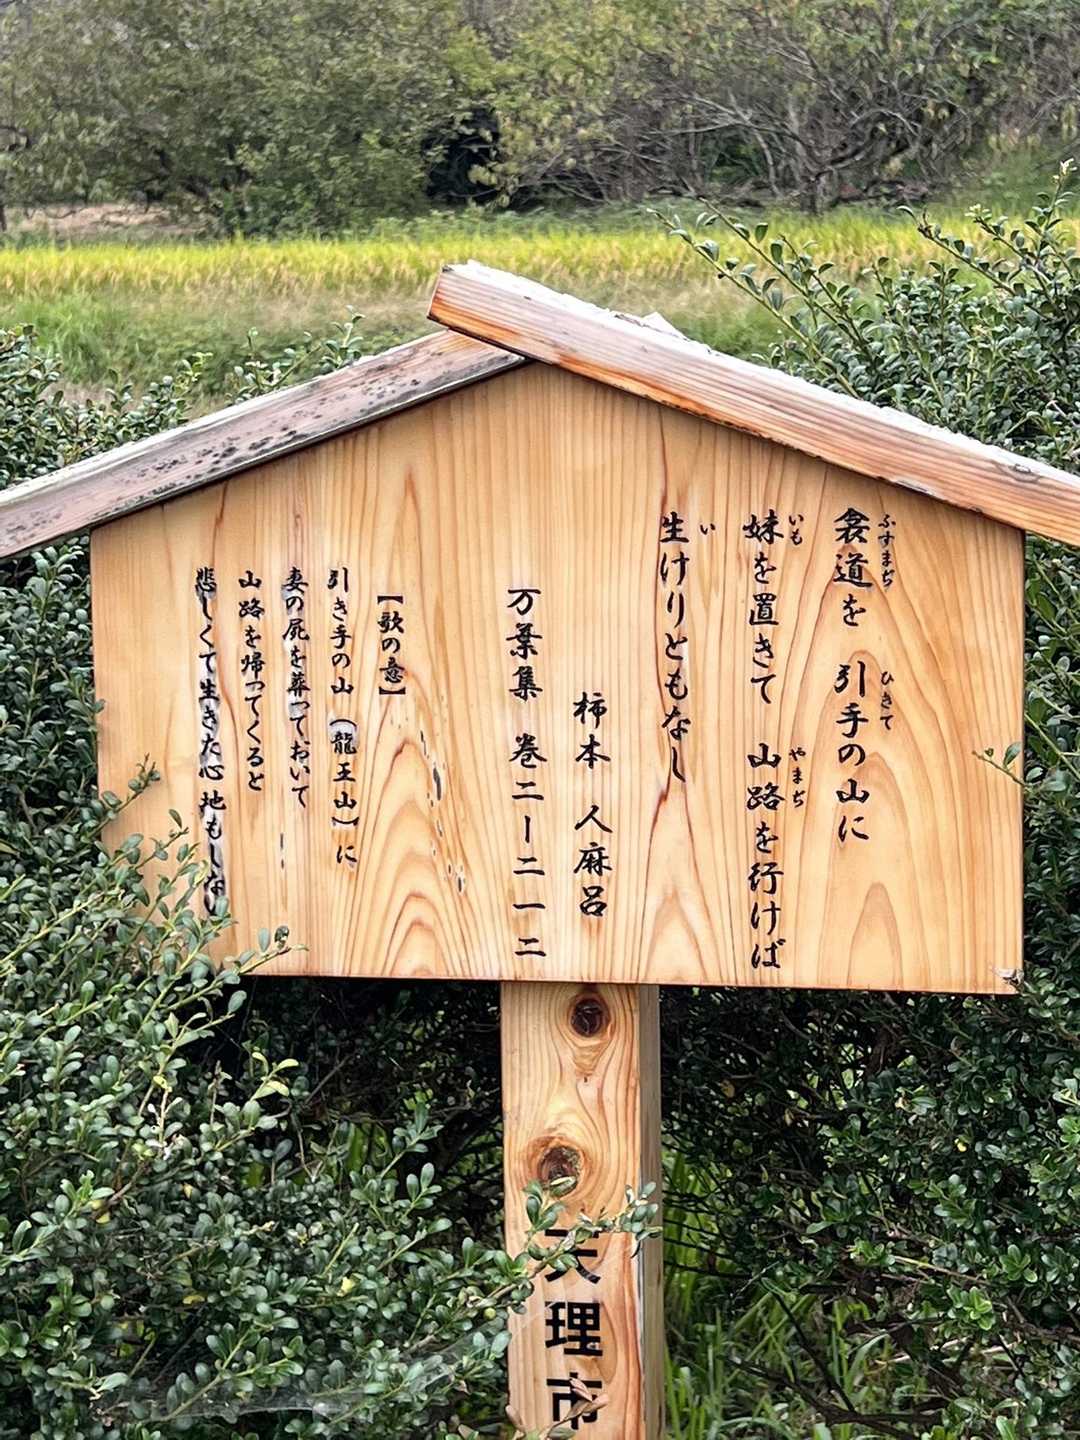 衾道を　引手の山に
ふすまぢ　ひきて
妹を置きて　山路を行けば
いも　やまぢ
生けりともなし
い
柿本　人麻呂
万葉集　巻二ー二一二
【歌の意】
引き手の山（龍王山）に
妻の屍を葬っておいて
山路を帰ってくると
悲しくて生きた心地もしな
天理市